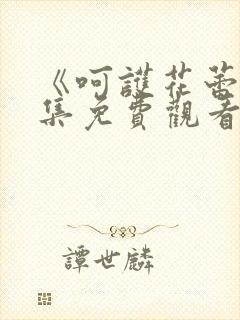 《呵護花蕾
集免費觀看
譚世麟